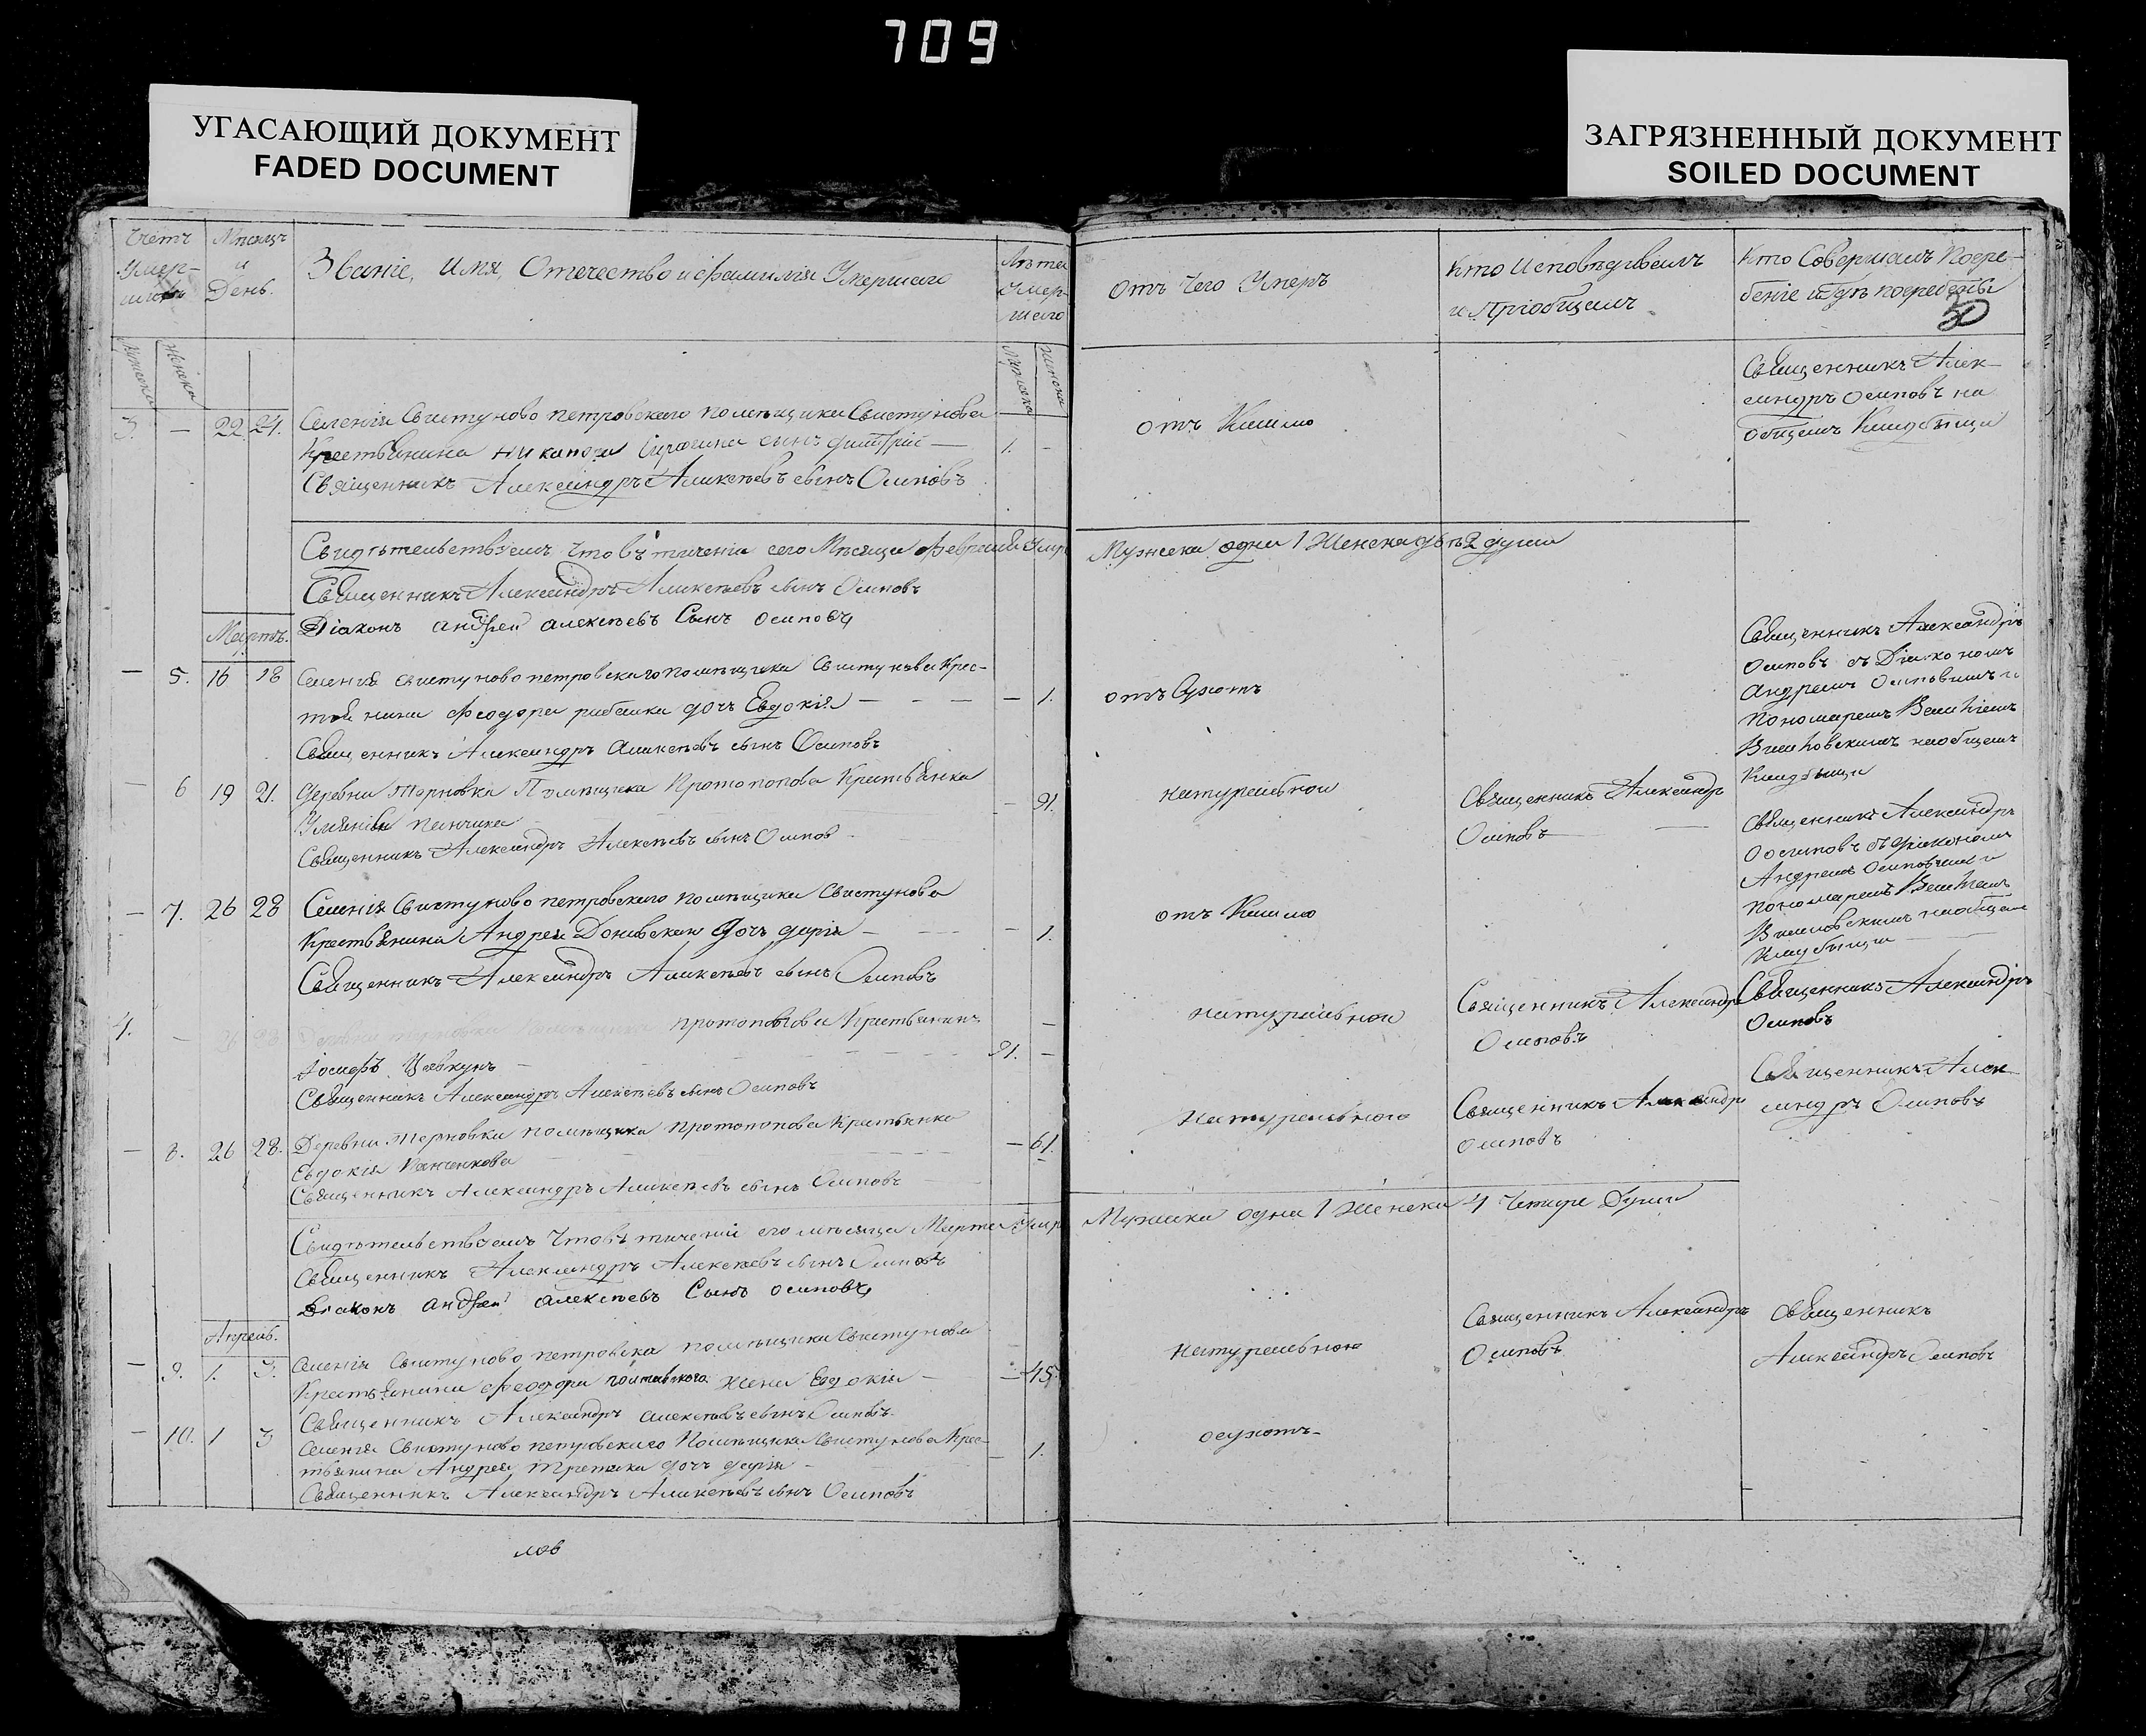 709
УГАСАЮЩИЙ ДОКУМЕНТ
FADED DOCUMENT
ЗАГРЯЗНЕННЫЙ ДОКУМЕНТ
SOILED DOCUMENT
Счетъ Умер-
Мѣсяцъ и День.
Званіе, Имя, Отечество и фамилія Умершаго
Лѣта Умер-
шаго
Отъ Чего Умеръ
Кто Исповѣдывалъ
и Пріобщалъ
Кто Совершалъ Погре-
беніе и гдѣ погребены
30
Мужеска
Женска
Мужеска
Женска
3. — 22 24. Селенія Свистуново петровскаго помѣщика Свистунова
Крестьянина Никанора сынъ Дмитрій — 1. —
Священникъ Александръ Алексѣевъ сынъ Осиповъ
отъ Кашлю
Священникъ Алек-
сандръ Осиповъ на
общемъ Кладбищи
Свидѣтельствуемъ что въ теченіи сего Мѣсяца Февраля Умр
Мужеска одна 1 Женска двѣ 2 души
Священникъ Александръ Алексѣевъ сынъ Осиповъ
Діаконъ андрей алексѣевъ Сынъ осиповъ
Мартъ.
— 5. 16 18 Селенія Свистуново петровскаго помѣщика Свистунова Крес-
тьянина Феодора рибалки дочь Евдокія — — — 1.
Священникъ Александръ Алексѣевъ сынъ Осиповъ
отъ Сухотъ
Священникъ Александръ
Осиповъ съ Діакономъ
Андреемъ Осиповымъ и
пономаремъ
наобщемъ
Кладбищи
— 6 19 21. Деревни Терновки Помѣщика Протопопова Крестьянка
Уліянія панчиха — 91.
Священникъ Александръ Алексѣевъ сынъ Осиповъ
натуральной
Священникъ Александръ
Осиповъ
Священникъ Александръ
Осиповъ съ діакономъ
Андреемъ Осиповымъ и
пономаремъ
наобщемъ
Кладбищи
— 7. 26 28 Селенія Свистуново петровскаго помѣщика Свистунова
Крестьянина Андрея дочь дарія — — 1.
Священникъ Александръ Алексѣевъ сынъ Осиповъ
отъ Кашлю
4. — 26 28 Деревни протопопова Крестьянинъ
Іосифъ Цавкунъ — 91. —
Священникъ Александръ Алексѣевъ сынъ Осиповъ
натуральной
Священникъ Александръ
Осиповъ
Священникъ Александръ
Осиповъ
— 8. 26 28. Деревни Терновки помѣщика протопопова Крестьянка
Евдокія Панченкова — 61.
Священникъ Александръ Алексѣевъ сынъ Осиповъ
Натуральною
Священникъ Александръ
Осиповъ
Священникъ Алек
сандръ Осиповъ
Свидѣтельствуемъ что въ теченіи сего мѣсяца Марта Умр
Мужеска одна 1 Женска 4 Четыре Души
Священникъ Александръ Алексѣевъ сынъ Осиповъ
Діаконъ андрей алексѣевъ Сынъ осиповъ
Апрель.
— 9. 1. 3. Селенія Свистуново петровска помѣщика Свистунова
Крестьянина Феодора полтавского жена Евдокія — — 45
Священникъ Александръ алексѣевъ сынъ Осиповъ
Натуральною
Священникъ Александръ
Осиповъ
Священникъ
Александръ Осиповъ
— 10. 1 3 Селенія Свистуново петровскаго Помѣщика Свистунова Крес-
тьянина Андрея третяка дочь дарія — — 1.
Священникъ Александръ Алексѣевъ сынъ Осиповъ
осухотъ
лов